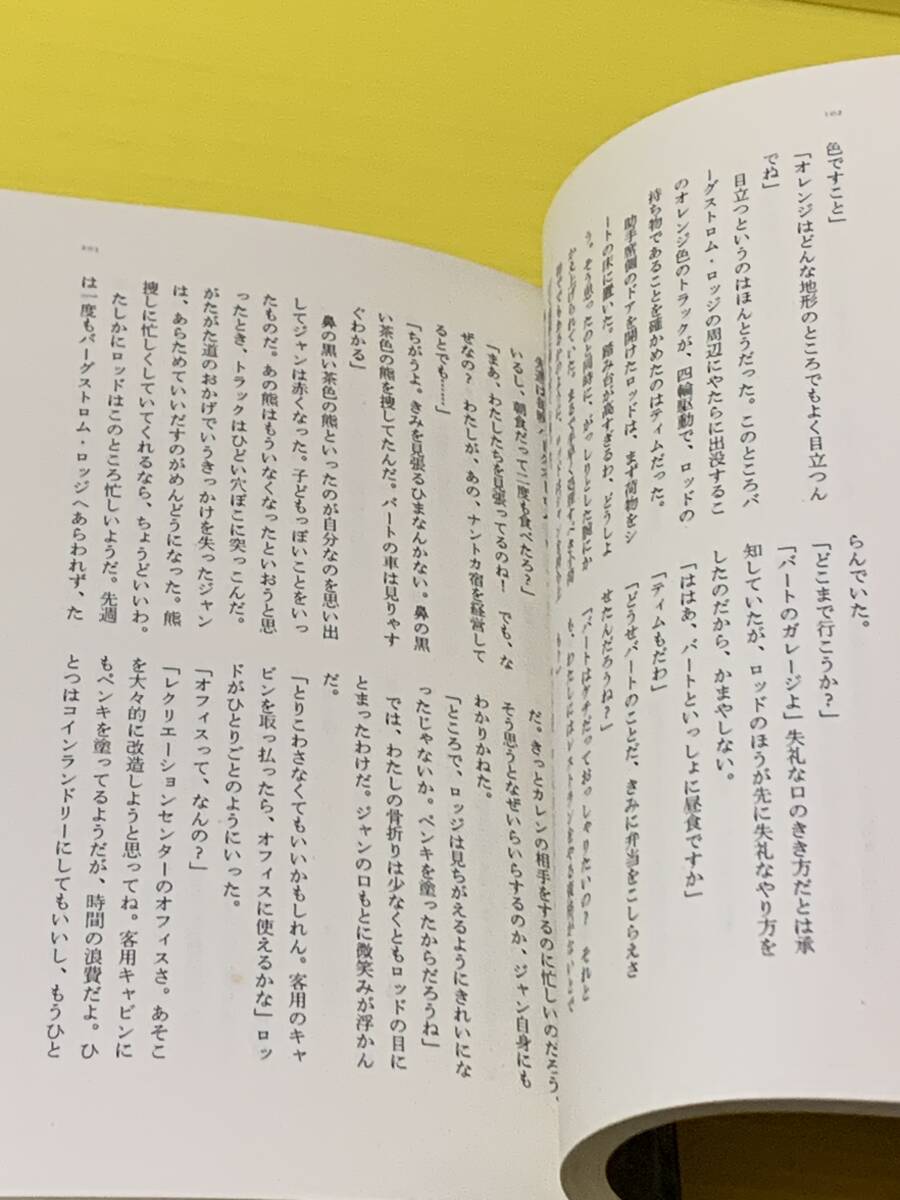 102
色ですこと」
「オレンジはどんな地形のところでもよく目立つん
でね」
目立つというのはほんとうだった。このところバ
ーグストロム・ロッジの周辺にやたらに出没するこ
のオレンジ色のトラックが、四輪駆動で、ロッドの
持ち物であることを確かめたのはティムだった。
助手席側のドアを開けたロッドは、まず荷物をシ
ートの床に置いた。踏み台が高すぎるわ、どうしよ
う。そう思ったのと同時に、がっしりとした腕にか
らんでいた。
「どこまで行こうか？」
「バートのガレージよ」失礼な口のきき方だとは承
知していたが、ロッドのほうが先に失礼なやり方を
したのだから、かまやしない。
「ははあ、バートといっしょに昼食ですか」
「ティムもだわ」
「どうせバートのことだ、きみに弁当をこしらえさ
せたんだろうね？」
「バートはケチだっておっしゃりたいの？　それと
103
いるし、朝食だって二度も食べたろ？」
「まあ、わたしたちを見張ってるのね！　でも、な
ぜなの？　わたしが、あの、ナントカ宿を経営して
るとでも……」
「ちがうよ。きみを見張るひまなんかない。鼻の黒
い茶色の熊を捜してたんだ。バートの車は見りゃす
ぐわかる」
鼻の黒い茶色の熊といったのが自分なのを思い出
してジャンは赤くなった。子どもっぽいことをいっ
たものだ。あの熊はもういなくなったといおうと思
ったとき、トラックはひどい穴ぼこに突っこんだ。
がたがた道のおかげでいうきっかけを失ったジャン
は、あらためていいだすのがめんどうになった。熊
捜しに忙しくしていてくれるなら、ちょうどいいわ。
たしかにロッドはこのところ忙しいようだ。先週
は一度もバーグストロム・ロッジへあらわれず、た
だ。きっとカレンの相手をするのに忙しいのだろう、
そう思うとなぜいらいらするのか、ジャン自身にも
わかりかねた。
「ところで、ロッジは見ちがえるようにきれいにな
ったじゃないか。ペンキを塗ったからだろうね」
では、わたしの骨折りは少なくともロッドの目に
とまったわけだ。ジャンの口もとに微笑みが浮かん
だ。
「とりこわさなくてもいいかもしれん。客用のキャ
ビンを取っ払ったら、オフィスに使えるかな」ロッ
ドがひとりごとのようにいった。
「オフィスって、なんの？」
「レクリエーションセンターのオフィスさ。あそこ
を大々的に改造しようと思ってね。客用キャビンに
もペンキを塗ってるようだが、時間の浪費だよ。ひ
とつはコインランドリーにしてもいいし、もうひと